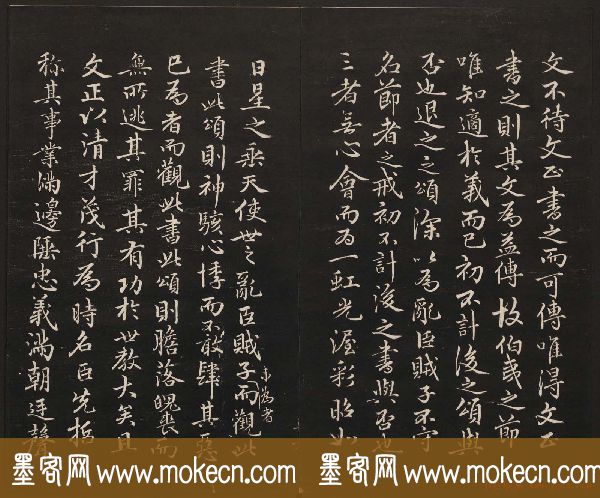 文不待文正書之而可傳唯得文正
書之則其文為益傳故伯夷之節
唯知適於義而已初不計後之頌與
否也退之之頌深以為亂臣賊子不守
名節者之戒初不計後之書與否也
三者無心會而為一虹光渥彩昭如
日星之垂天使世之亂臣賊子而觀此
書此頌則神駭心悸而不敢肆其惡
未為者
已為者而觀此書此頌則膽落魄喪而
無所逃其罪其有功於世教大矣且
文正以清才茂行為時名臣先
称其事業滿邊陲忠義滿朝廷
墨客网 www.mokecn.com 墨客网 www.mokecn.com